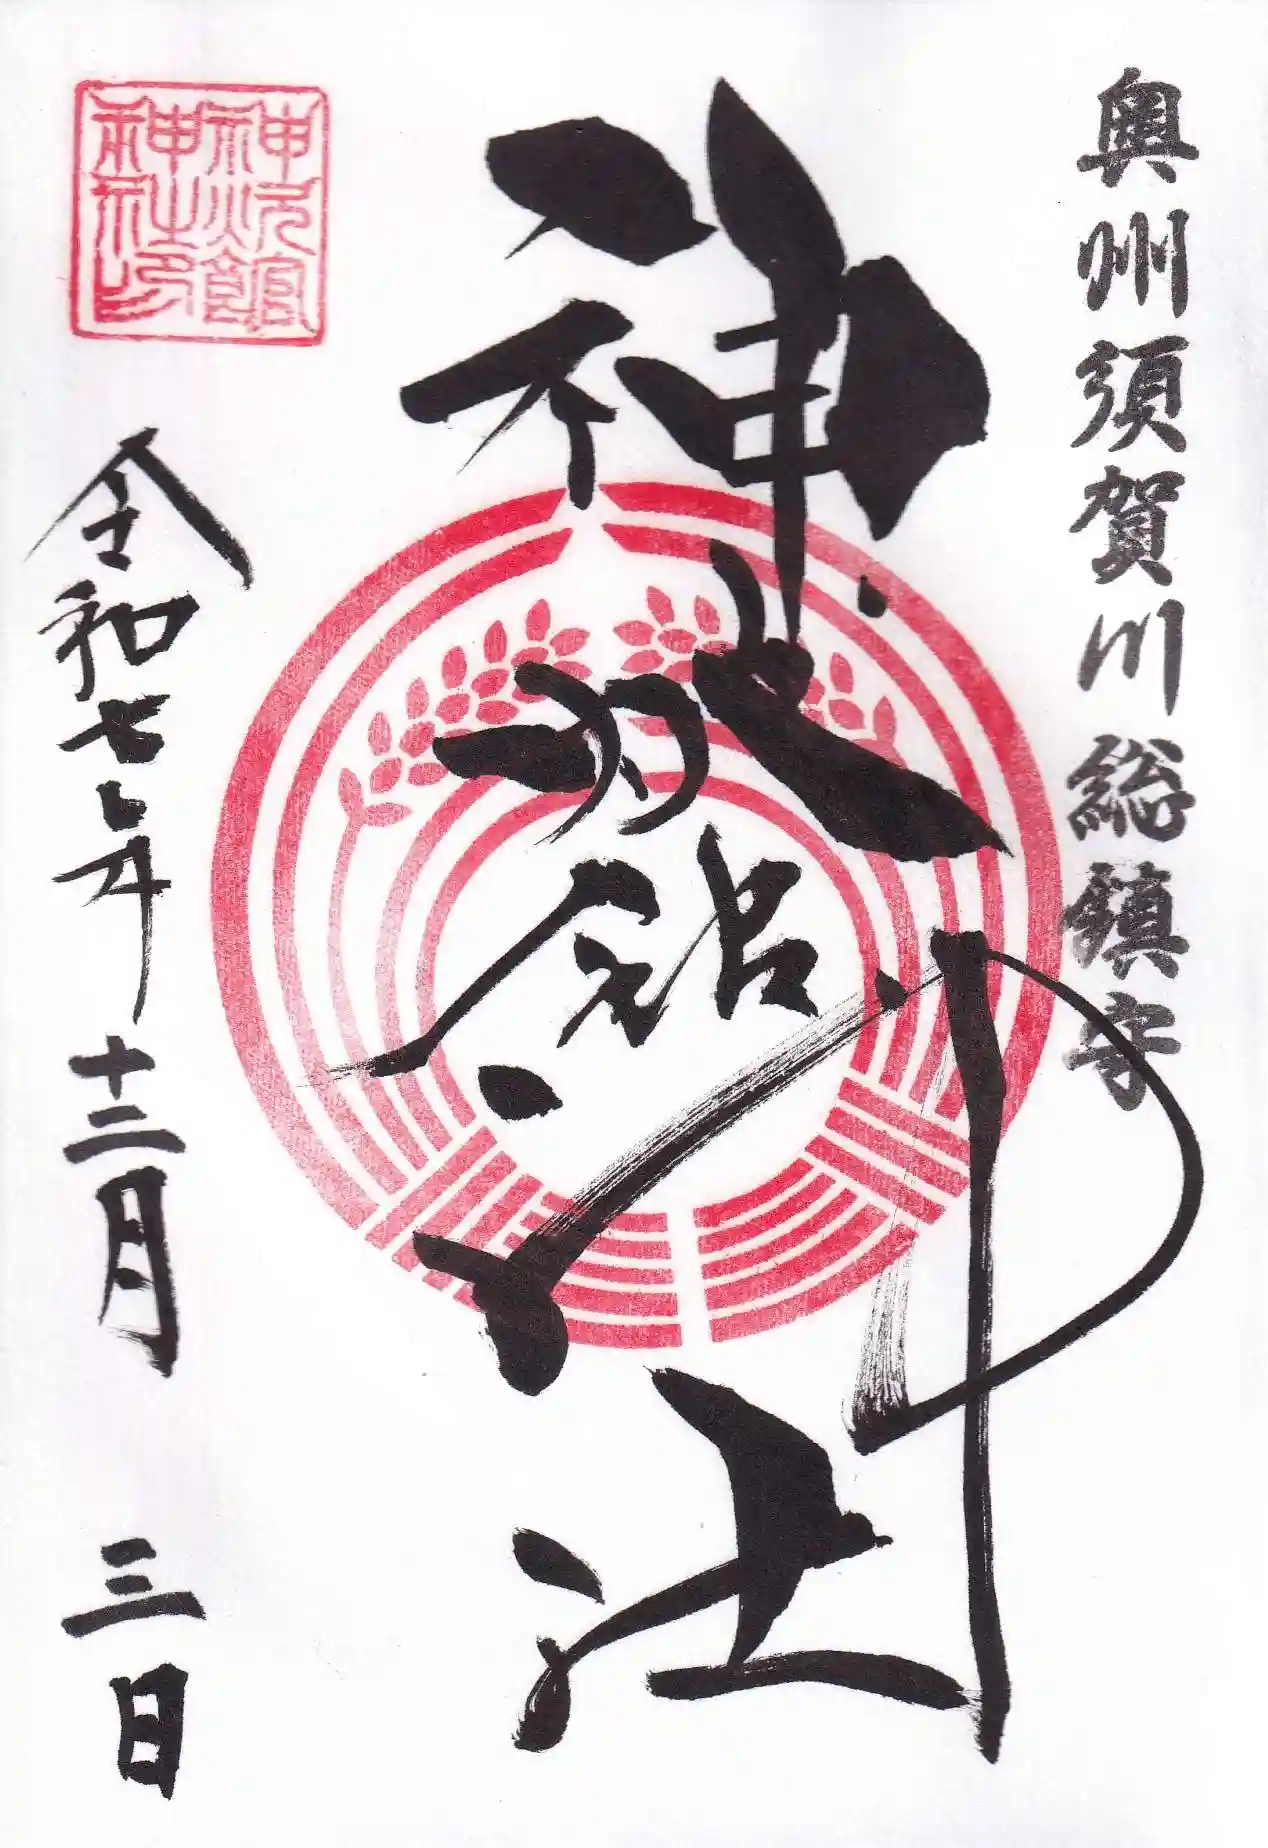 奥州須賀川総鎮守
神炊館神社
令和七年十二月三日
神炊館
神社印